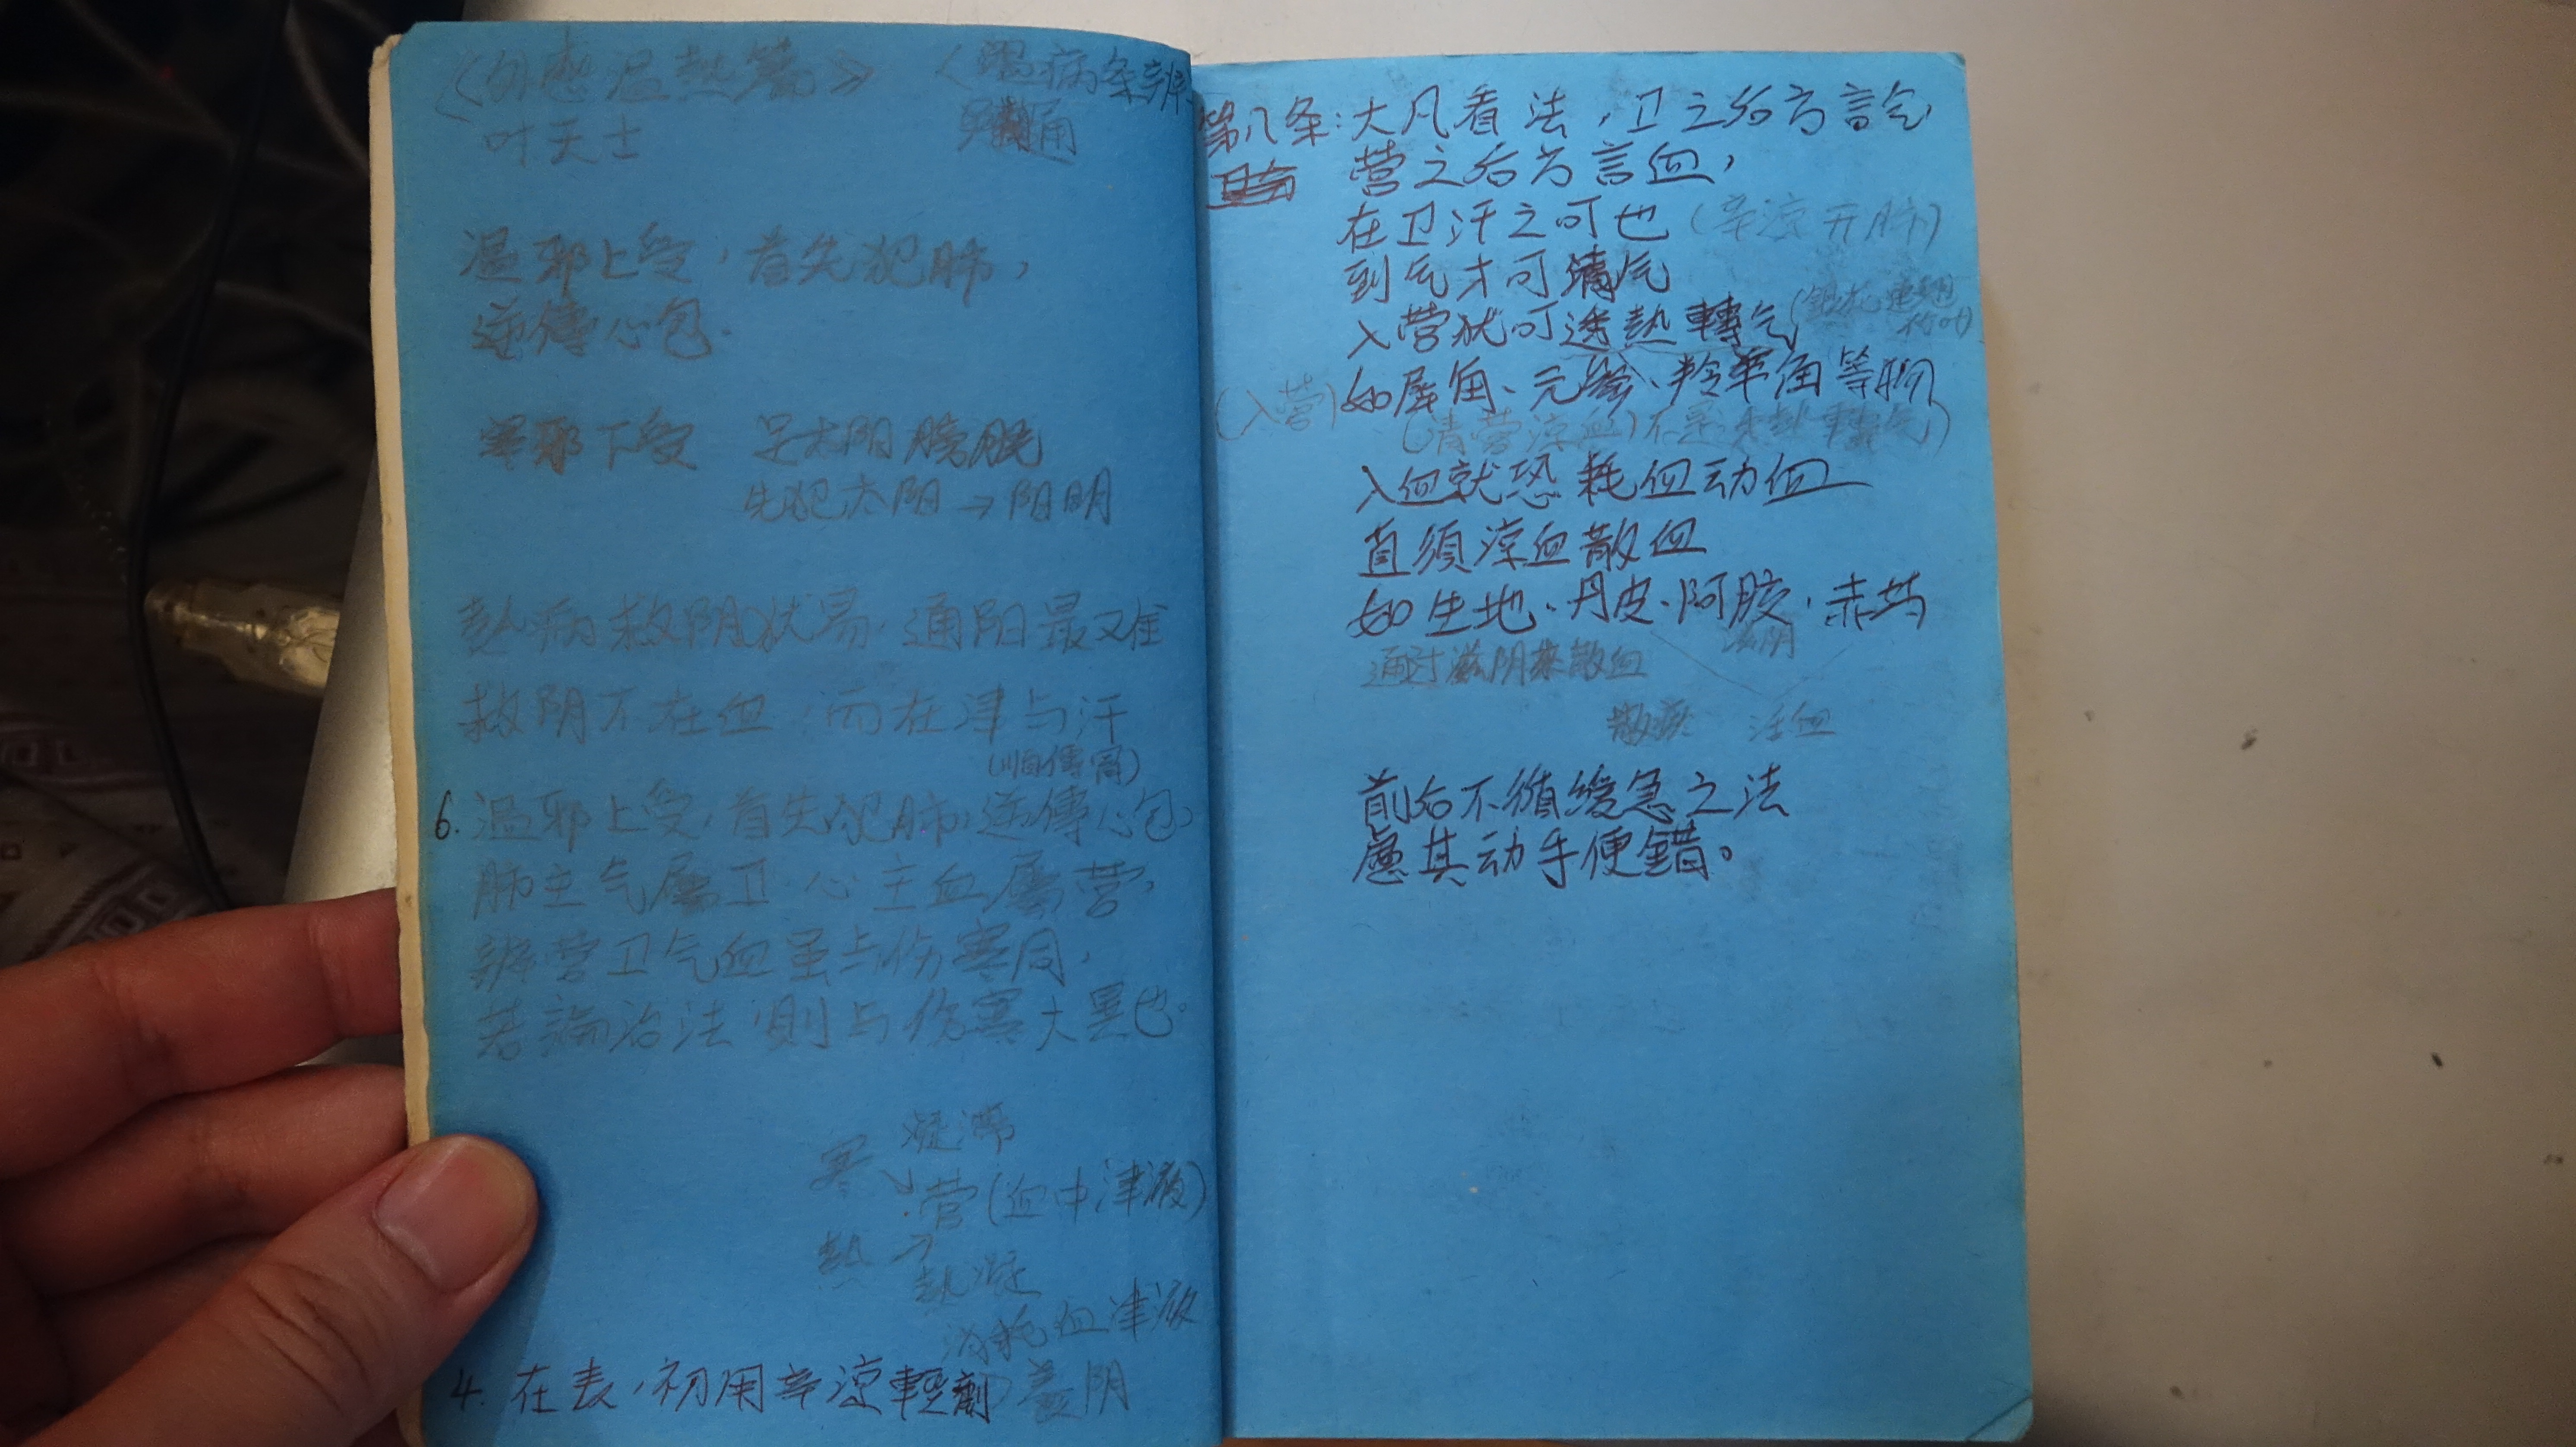 《外感温热篇》 《温病条辨》
叶天士 吴鞠通
温邪上受，首先犯肺，
逆傳心包.
寒邪下受 足太阳膀胱
先犯太阳→阳明
热病救阴犹易，通阳最难
救阴不在血，而在津与汗
(顺傳胃)
6. 温邪上受，首先犯肺，逆傳心包，
肺主气属卫，心主血属营，
辨营卫气血虽与伤寒同，
若論治法，則与伤寒大異也。
凝滞
寒↘
营(血中津液)
热↗
热凝
消耗血津液
4. 在表，初用辛凉輕劑 养阴
第八条：大凡看法，卫之后方言气
营之后方言血，
在卫汗之可也(辛凉开肺)
到气才可清气
入营犹可透热轉气(銀花 連翘
竹叶)
(入营)如犀角、元参、羚羊角等物
(清营凉血)不是透热轉气)
入血就恐耗血动血
直須涼血散血
如生地、丹皮、阿胶、赤芍
滋阴
通过滋阴来散血
散瘀 活血
前后不循缓急之法
慮其动手便錯。